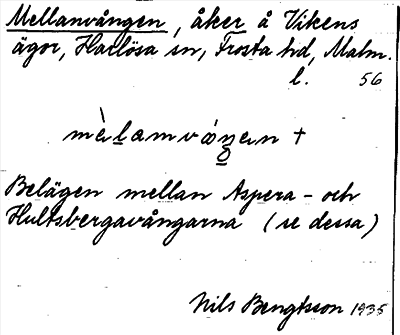 Mellanvången, åker å Vikens
ägor, Harlösa sn, Frosta hd, Malm.
l. 56
mèlamvåṇeṇ +
Belägen mellan Aspera- och
Hultsbergavångarna (se dessa)
Nils Bengtsson 1935